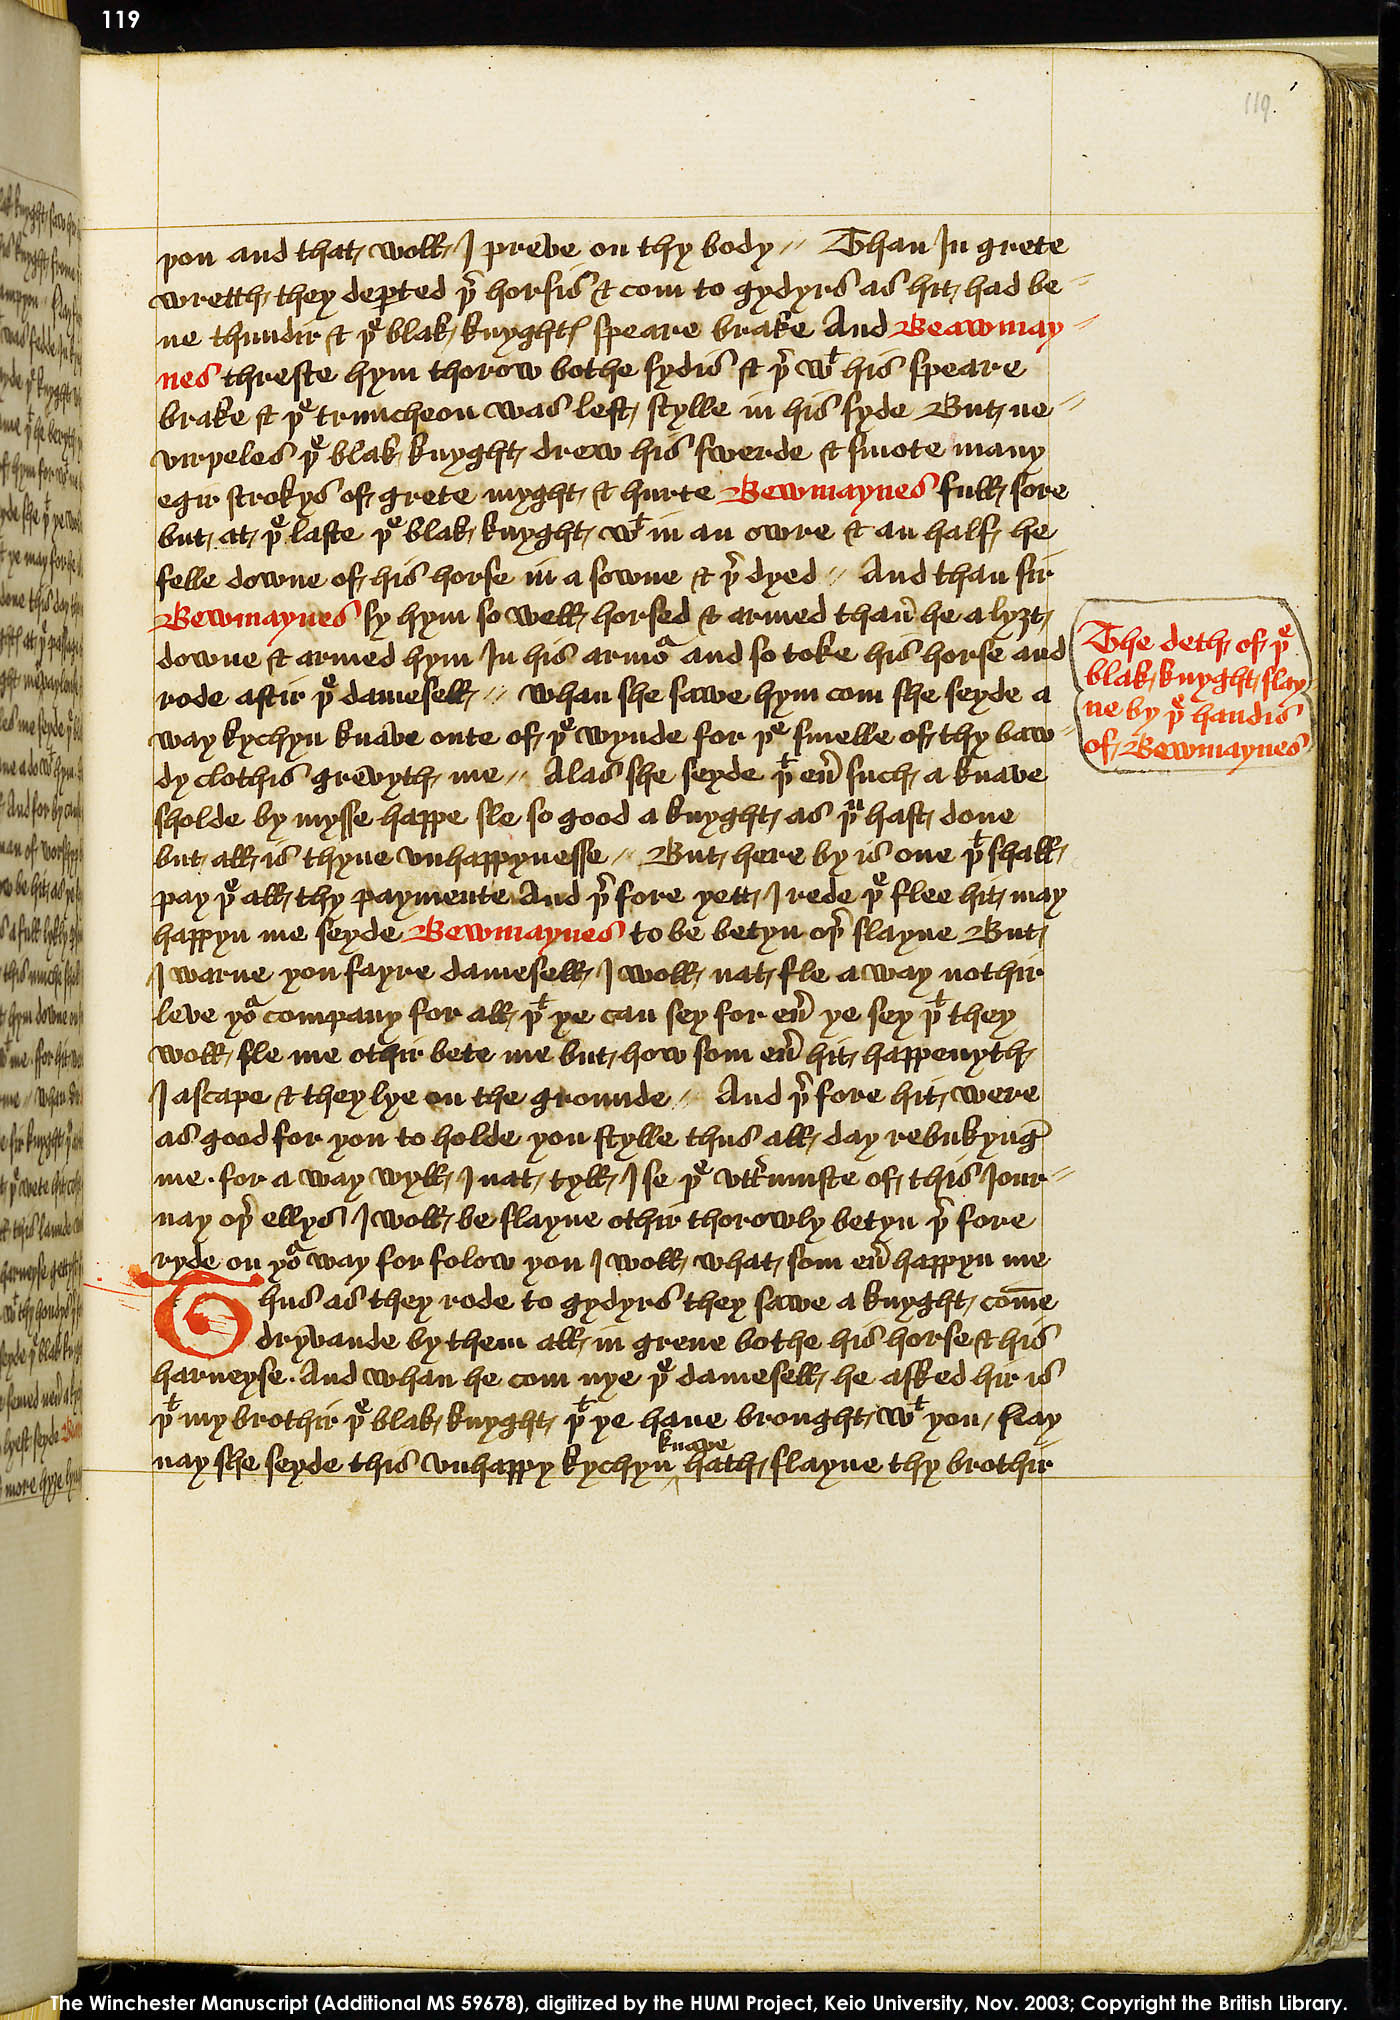 119
119.
yon and that woll I preve on thy body // Than In grete
wretth they deꝑted þr̄ horsis & com to gydyrs as hit had be-
ne thundir & þe blak knyghtes speare brake And Beawmay-
nes threste hym thorow bothe sydis & þr̄ wt his speare
brake & þe truncheon was left stylle in his syde But ne-
virþeles þe blak knyght drew his swerde & smote many
egir strokys of grete myght & hurte Bewmaynes full sore
but at þe laste þe blak knyght wt in an owre & an half he
felle downe of his horse in a sowne & þr̄ dyed // And than sir
Bewmaynes sy hym so well horsed & armed than̄ he a lyȝt
downe & armed hym In his armoa and so toke his horse and
rode aftir þe damesell // whan she sawe hym com she seyde a
way kychyn knave oute of þe wynde for þe smelle of thy baw-
dy clothis grevyth me // Alas she seyde þt eū such a knave
sholde by mysse happe sle so good a knyght as þu hast done
but all is thyne vnhappynesse // But here by is one þt shall
pay þe all thy paymente And þr̄ fore yett I rede þe flee hit may
happyn me seyde Bewmaynes to be betyn oþr̄ slayne But
I warne you fayre damesell I woll nat fle a way nothir
leve yoa company for all þt ye can sey for eū ye sey þt they
woll sle me othir bete me but how som eū hit happenyth
I ascape & they lye on the grounde // And þr̄ fore hit were
as good for you to holde you stylle thus all day rebukynḡ
me. for a way wyll I nat tyll I se þe vttr̄muste of this Iour-
nay oþr̄ ellys I woll be slayne othir thorowly betyn þr̄ fore
ryde on yoa way for folow you I woll what som eū happyn me
Thus as they rode to gydyrs they sawe a knyght com̄e
dryvande by them all in grene bothe his horse & his
harneyse. And whan he com nye þe damesell he asked hir is
þt my brothir þe blak knyght þt ye haue brought wt you / Nay
nay she seyde this vnhappy kychyn knave hath slayne thy brothir
The deth of þe
blak knyght slay
ne by þe handis
of Bewmaynes
The Winchester Manuscript (Additional MS 59678), digitized by the HUMI Project, Keio University, Nov. 2003; Copyright the British Library.